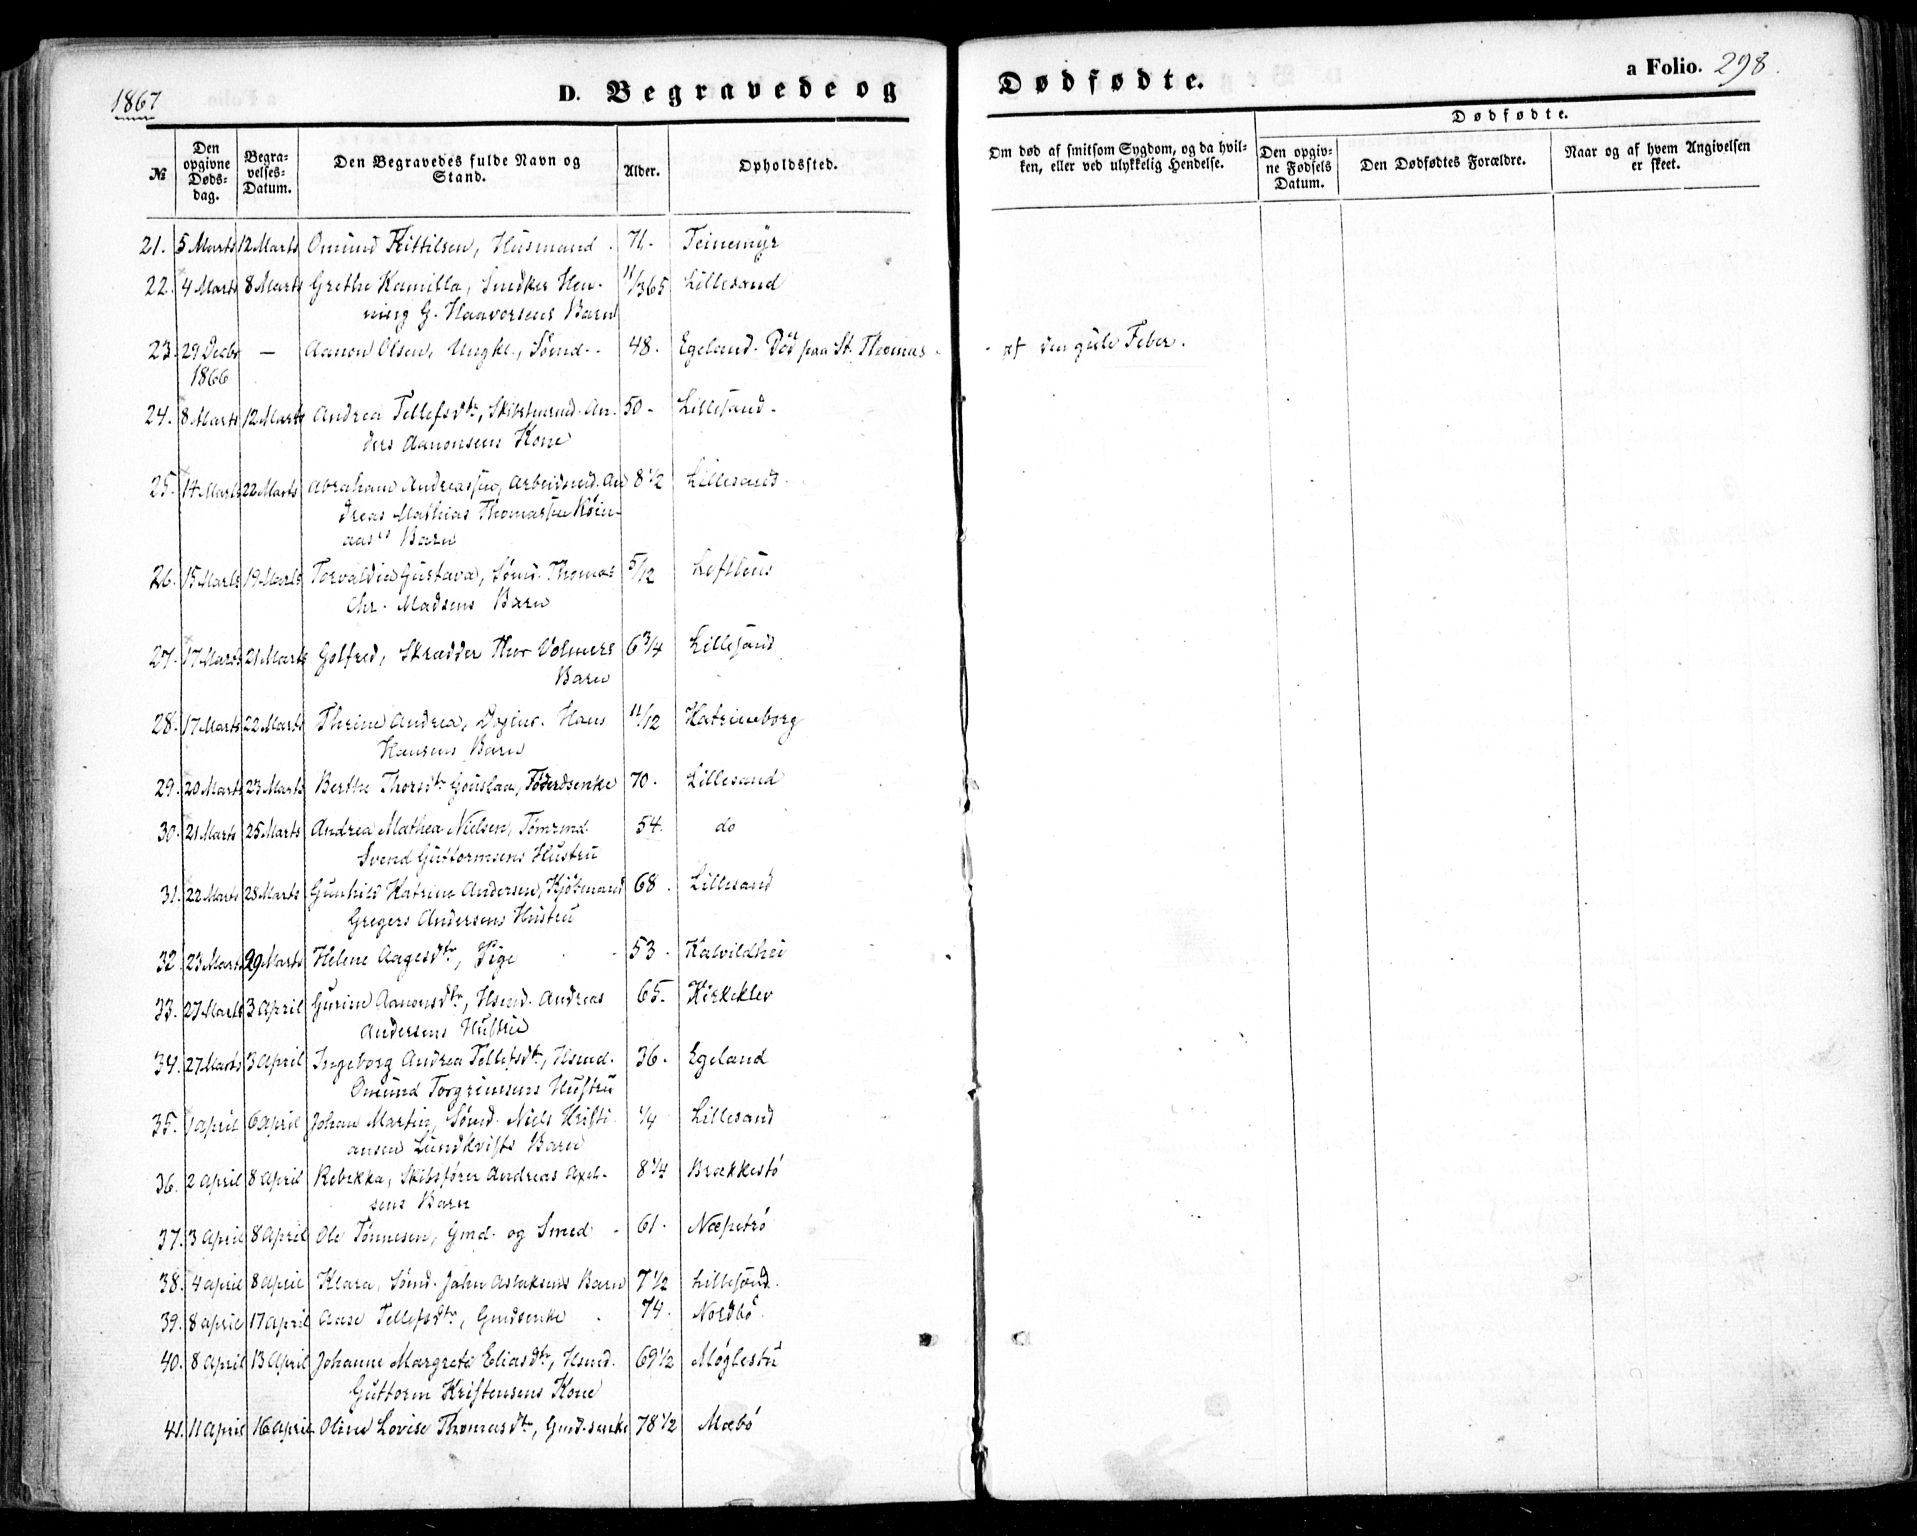 1867
D. Begravede og Dødfødte.
a Folio. 298.
№
Den opgivne Døds-dag.
Begra-velses-Datum.
Den Begravedes fulde Navn og Stand.
Alder.
Opholdssted.
Om død af smitsom Sygdom, og da hvil-ken, eller ved ulykkelig Hendelse.
Dødfødte.
Den opgiv-ne Fødsels Datum.
Den Dødfødtes Forældre.
Naar og af hvem Angivelsen er skeet.
21. 5 Marts 12 Marts Omund Kittilsen, Husmand. 71. Teinemyr
22. 4 Marts 8 Marts Grethe Kamilla, Snedker Hen- 11/365 Lillesand
ning G. Haavorsens Barn
23. 29 Decbr — Aanon Olsen, Ungkl., Sømd. 48. Egeland. Død paa St. Thomas - af den gule Feber.
1866
24. 8 Marts 12 Marts Andrea Tellefsdtr, Skibstmrmd. An- 50 - Lillesand.
ders Aanonsens Kone
25. 14 Marts 22 Marts Abraham Andreassen, Arbeidsmd. An 8 1/2 Lillesand.
dreas Mathias Thomassen
Barn
26. 15 Marts 19 Marts Torvaldia Gustava, Sømd. Thomas 5/12 Lofthuus
Chr. Madsens Barn
27. 17 Marts 21 Marts Golfred, Skrædder Thor Volmers 6 3/4 Lillesand
Barn
28. 17 Marts 22 Marts Thrine Andrea, Hans 11/12 Katrineborg
Hansens Barn
29. 20 Marts 23 Marts Berthe Thorsdtr Gouslaa, Føderdsenke 70. Lillesand
30. 21 Marts 25 Marts Andrea Mathea Nielsen, Tømrmd. 54. do
Svend Guttormsens Hustru
31. 22 Marts 28 Marts Gunhild Katrine Andersen, Kjøbmand 68. Lillesand
Gregers Andersens Hustru
32. 23 Marts 29 Marts Helene Aagesdtr, Pige 53. Kalvildhei
33. 27 Marts 3 April Gurine Aanonsdtr, Hsmd. Andreas 65. Kirkeklev
Andersens Hustru
34. 27 Marts 3 April Ingeborg Andrea Tellefsdtr, Hsmd. 36. Egeland
Omund Torgrimsens Hustru
35. 1 April 6 April Johan Martin, Sømd. Niels Kristi- 1/4 Lillesand
ansen Lundkvists Barn
36. 2 April 8 April Rebekka, Skibsfører Andreas Axel- 8 1/4 Brækkestø
sens Barn
37. 3 April 8 April Ole Tønnesen, Gmd. og Smed - 61. Næpetrø
38. 4 April 8 April Klara, Sømd. John Aslaksens Barn 7 1/2 Lillesand.
39. 8 April 17 April Aase Tellefsdtr, Gmdsenke 74. Nordbø.
40. 8 April 13 April Johanne Margrete Eliasdtr, Hsmd. 69 1/2 Møglestu
Guttorm Kristensens Kone
41. 11 April 16 April Oline Lovise Thomasdtr, Gmd.senke 78 1/2 Mæbø